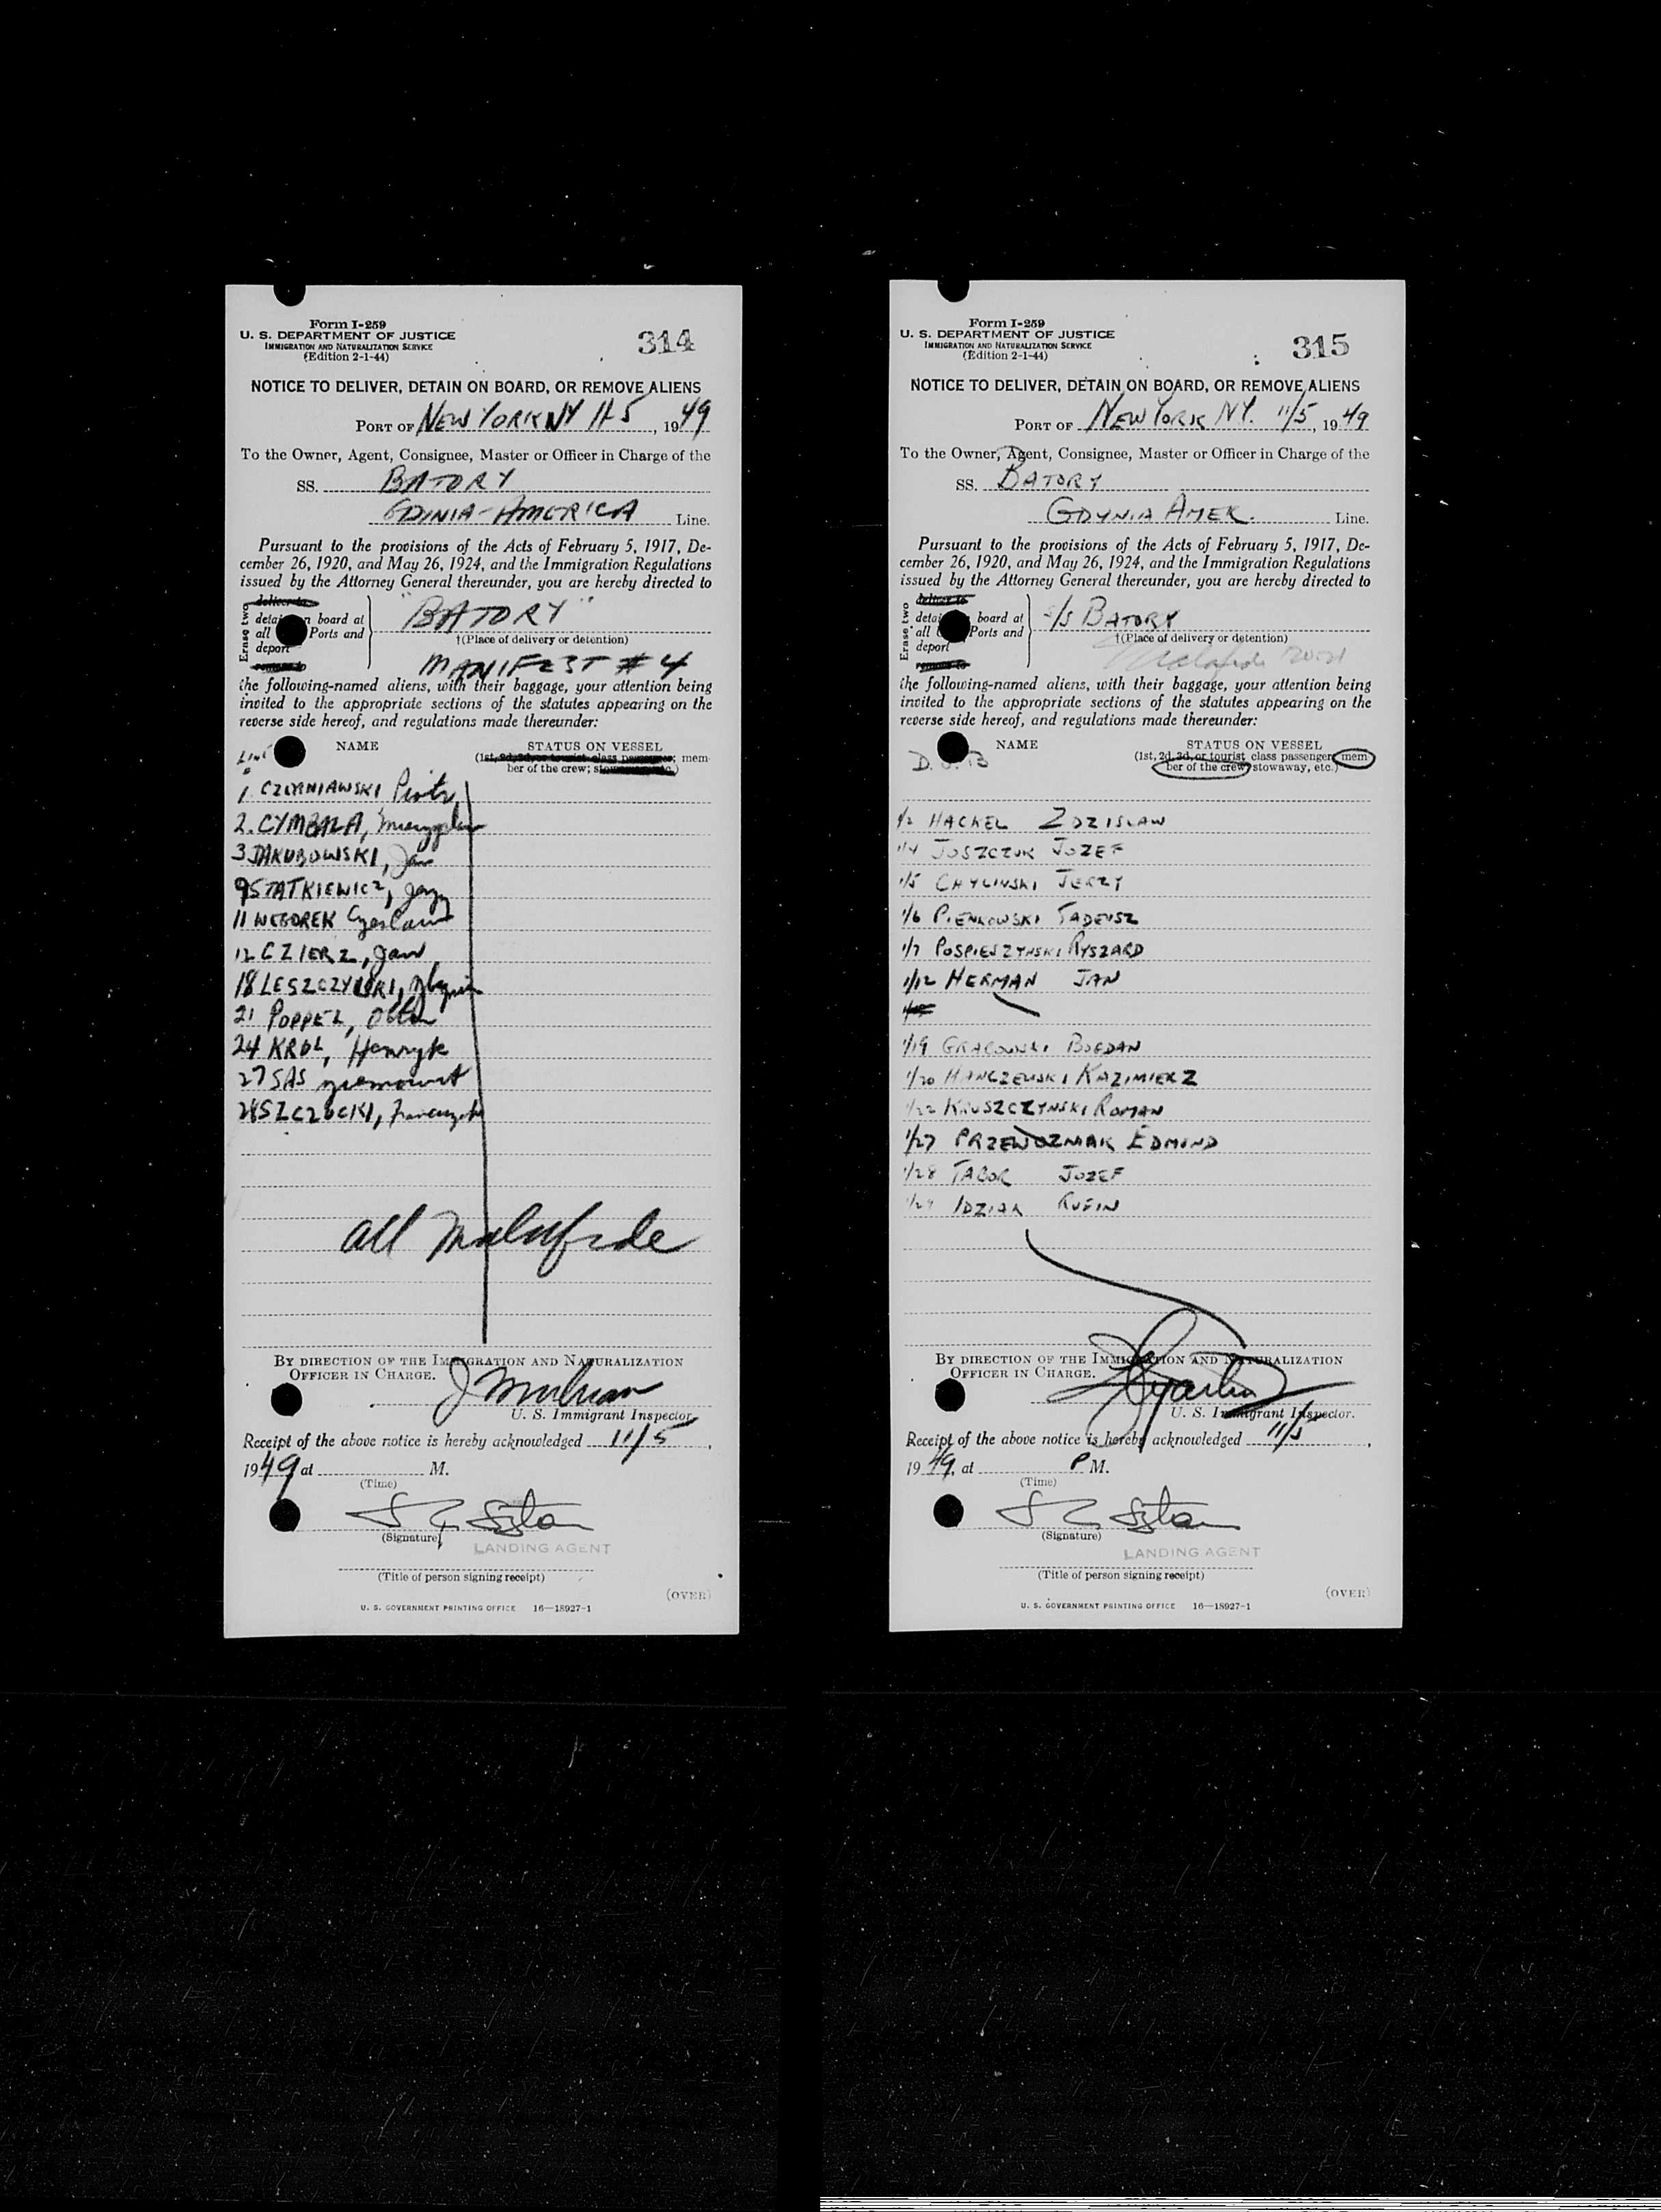 Form I-259
U. S. DEPARTMENT OF JUSTICE
IMMIGRATION AND NATURALIZATION SERVICE
(Edition 2-1-44)
314
NOTICE TO DELIVER, DETAIN ON BOARD, OR REMOVE ALIENS
PORT OF NEW YORK NY 11-5, 1949
To the Owner, Agent, Consignee, Master or Officer in Charge of the
SS. BATORY
GDINIA-AMERICA Line.
Pursuant to the provisions of the Acts of February 5, 1917, De-
cember 26, 1920, and May 26, 1924, and the Immigration Regulations
issued by the Attorney General thereunder, you are hereby directed to
Erase two
deliver to
detain on board at
all Ports and
deport
remove to
"BATORY"
†(Place of delivery or detention)
MANIFEST #4
the following-named aliens, with their baggage, your attention being
invited to the appropriate sections of the statutes appearing on the
reverse side hereof, and regulations made thereunder:
Line NAME STATUS ON VESSEL
(1st, 2d, 3d, or tourist class passenger; mem-
ber of the crew; stowaway, etc.)
1 CZERNIAWSKI, Piotr
2. CYMBALA,
3 JAKUBOWSKI, Jan
9 STATKIEWICZ, Jerzy
11 WEGOREK Czeslaw
12 CZIERZ, Jan
18 LESZCZYNSKI, Zbigniew
21 POPPEL, Otton
24 KROL, Henryk
27 SAS
28 SZCZUCKI, Franciszek
all Malafide
BY DIRECTION OF THE IMMIGRATION AND NATURALIZATION
OFFICER IN CHARGE.
U. S. Immigrant Inspector.
Receipt of the above notice is hereby acknowledged 11/5,
1949 at M.
(Time)
(Signature)
LANDING AGENT
(Title of person signing receipt)
(OVER)
U. S. GOVERNMENT PRINTING OFFICE 16—18927-1
Form I-259
U. S. DEPARTMENT OF JUSTICE
IMMIGRATION AND NATURALIZATION SERVICE
(Edition 2-1-44)
315
NOTICE TO DELIVER, DETAIN ON BOARD, OR REMOVE ALIENS
PORT OF NEW YORK NY. 11/5, 1949
To the Owner, Agent, Consignee, Master or Officer in Charge of the
SS. BATORY
GDYNIA AMER. Line.
Pursuant to the provisions of the Acts of February 5, 1917, De-
cember 26, 1920, and May 26, 1924, and the Immigration Regulations
issued by the Attorney General thereunder, you are hereby directed to
Erase two
deliver to
detain on board at
all Ports and
deport
remove to
S/S BATORY
†(Place of delivery or detention)
Malafide
the following-named aliens, with their baggage, your attention being
invited to the appropriate sections of the statutes appearing on the
reverse side hereof, and regulations made thereunder:
NAME STATUS ON VESSEL
(1st, 2d, 3d, or tourist class passenger; mem-
ber of the crew; stowaway, etc.)
1/2 HACKEL ZDZISLAW
1/4 JOSZCZUK JOZEF
1/5 CHYLINSKI JERZY
1/6 PIENKOWSKI TADEUSZ
1/7 POSPIESZYNSKI RYSZARD
1/12 HERMAN JAN
1/19 GRABOWSKI BOGDAN
1/20 HANCZEWSKI KAZIMIERZ
1/22 KRUSZCZYNSKI ROMAN
1/27 PRZEWOZNIAK EDMUND
1/28 TABOR JOZEF
1/29 IDZIAK RUFIN
BY DIRECTION OF THE IMMIGRATION AND NATURALIZATION
OFFICER IN CHARGE.
U. S. Immigrant Inspector.
Receipt of the above notice is hereby acknowledged 11/5,
1949, at P M.
(Time)
(Signature)
LANDING AGENT
(Title of person signing receipt)
(OVER)
U. S. GOVERNMENT PRINTING OFFICE 16—18927-1